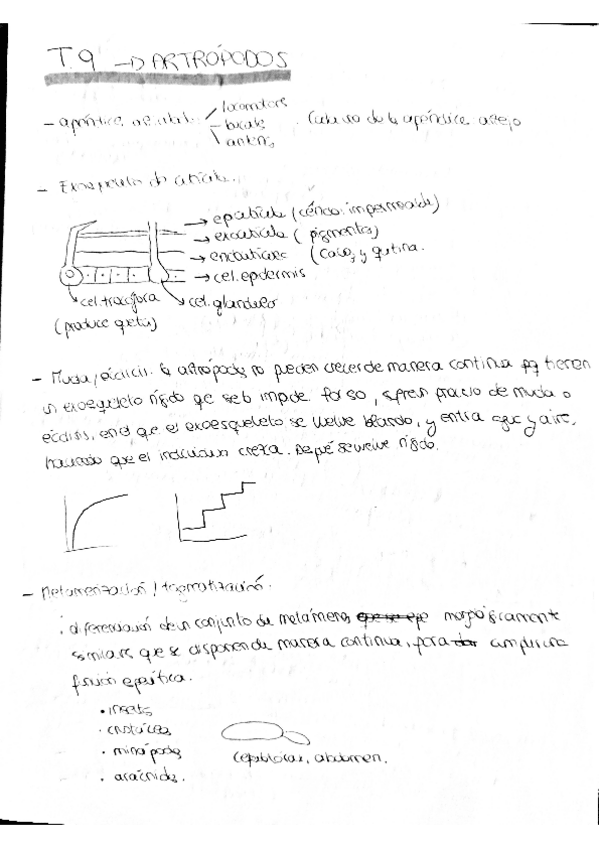 T.9 → ARTRÓPODOS
- apéndices articulados
locomotores
bucales
antenas
cada uno de los apéndice artejo
- Exoesqueleto de cutícula.
→ epicutícula (céreo. impermeable)
→ exocutícula (pigmentos)
→ endocutícula (calcio y quitina.
→ cel. epidermis
cel. tricógena
cel. glandulares
(produce quetas)
- Muda / ecdisis. los artrópodos no pueden crecer de manera continua pq tienen
un exoesqueleto rígido que se lo impide. Por eso, sufren proceso de muda o
ecdisis, en el que el exoesqueleto se vuelve blando, y entra agua y aire,
haciendo que el individuo crezca. Después se vuelve rígido.
- Metamerización / tagmatización.
. diferenciación de un conjunto de metámeros morfológicamente
similares que se disponen de manera continua, para cumplir una
función específica.
• insectos
• crustáceos
• miriápodos
• arácnidos.
cefalotórax, abdomen.